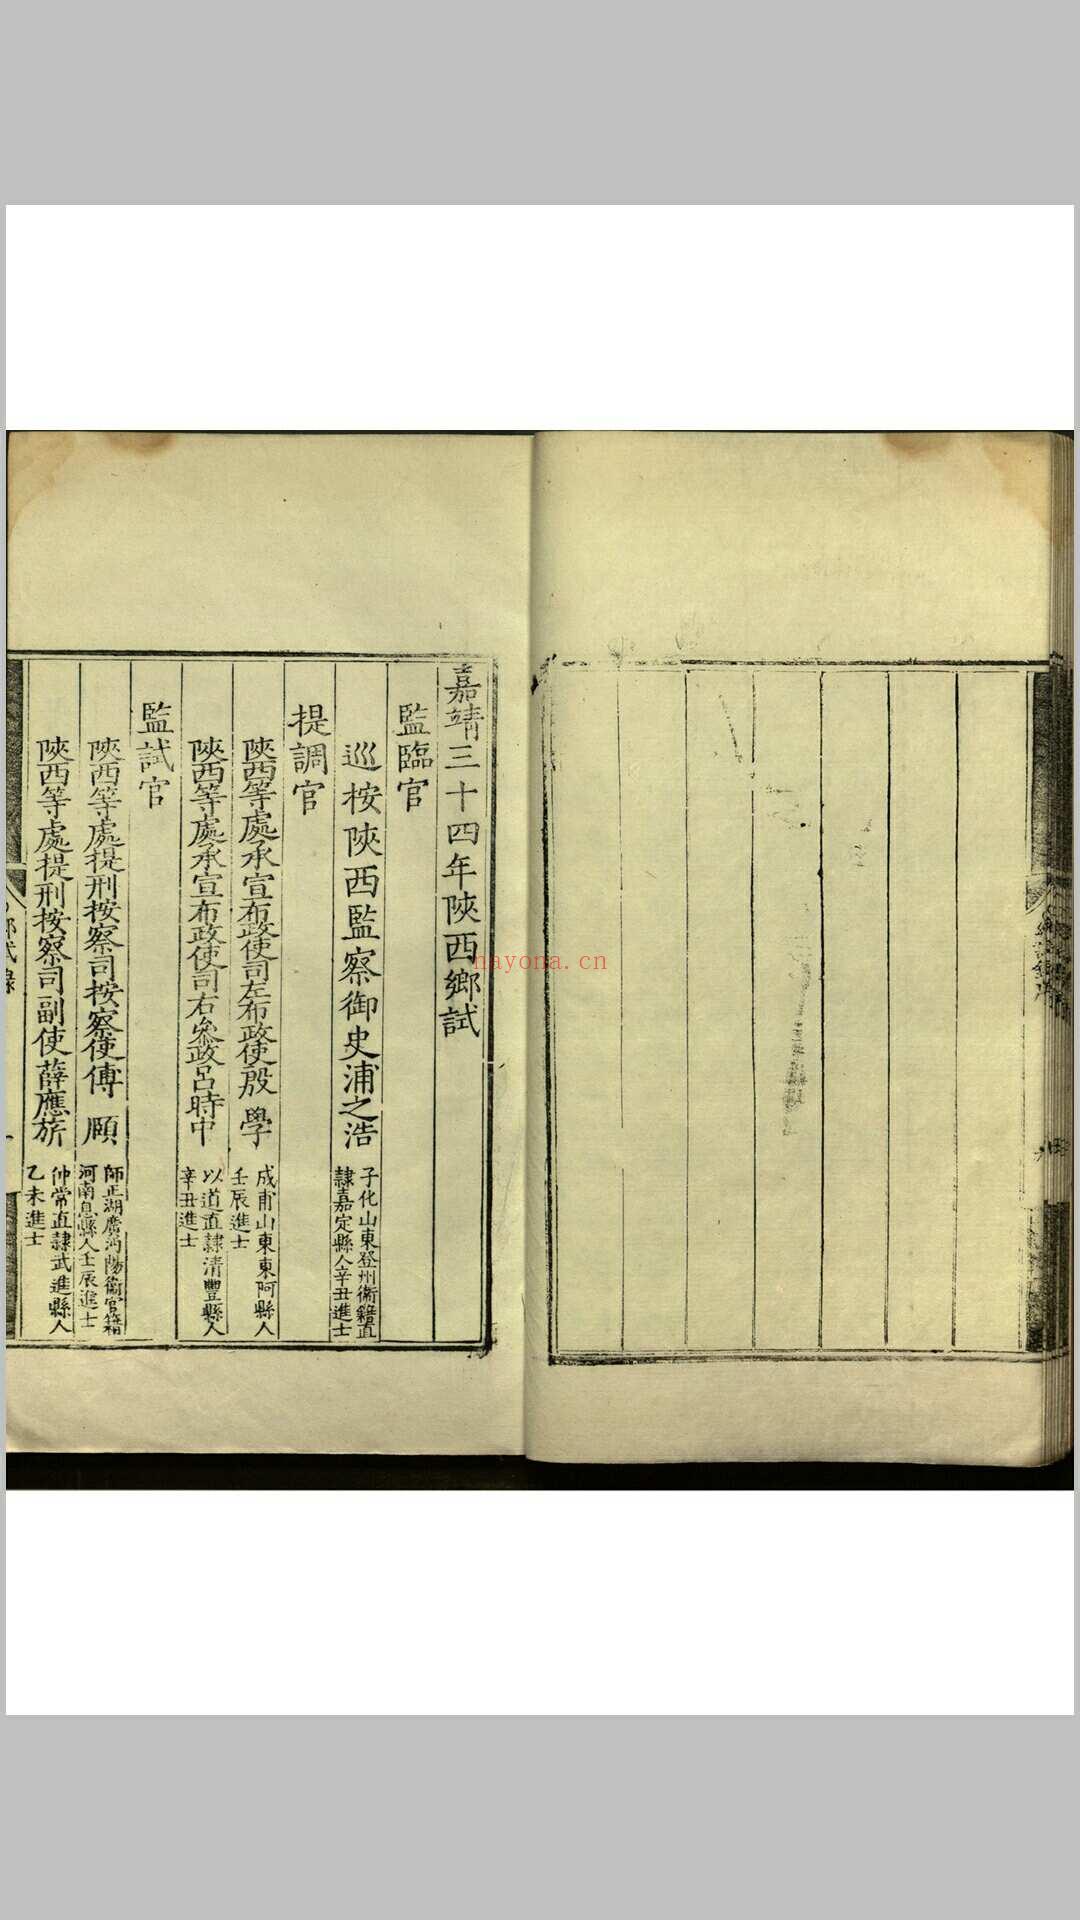 嘉靖三十四年陝西鄉試
監臨官
巡按陝西監察御史浦之浩
子化山東登州衛籍直
隸嘉定縣人辛丑進士
提調官
陝西等處承宣布政使司左布政使殷學
成甫山東東阿縣人
壬辰進士
陝西等處承宣布政使司右叅政呂時中
以道直隸清豐縣人
辛丑進士
監試官
陝西等處提刑按察司按察使傅頤
師正湖廣沔陽衛官籍
河南息縣人壬辰進士
陝西等處提刑按察司副使薛應旂
仲常直隸武進縣人
乙未進士
nayona.cn